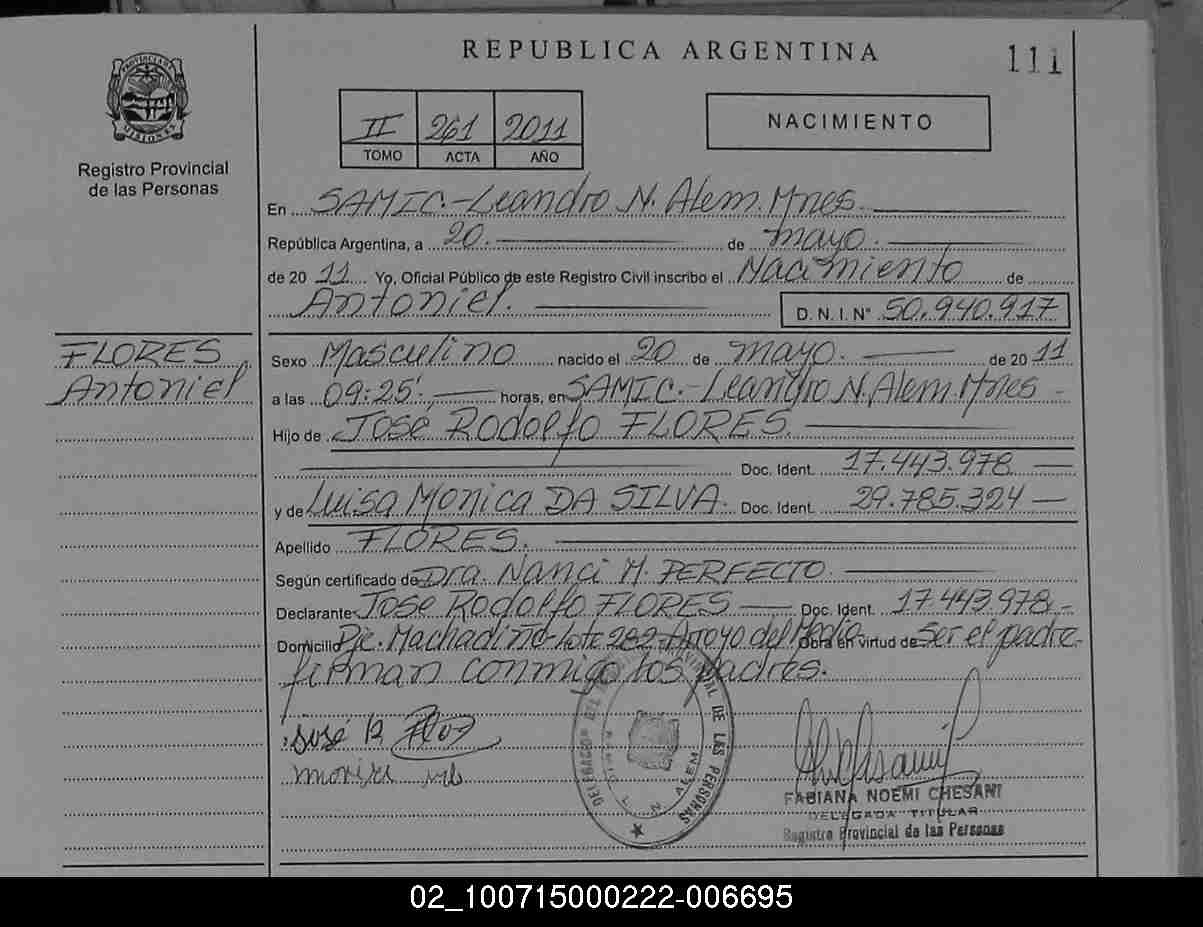 REPUBLICA ARGENTINA
111
PROVINCIA DE MISIONES
Registro Provincial
de las Personas
II 261 2011
TOMO ACTA AÑO
NACIMIENTO
En SAMIC-Leandro N. Alem. Mnes.
República Argentina, a 20. de mayo.
de 2011 Yo, Oficial Público de este Registro Civil inscribo el Nacimiento de
Antoniel. D.N.I. Nº 50.940.917
FLORES
Antoniel
Sexo Masculino nacido el 20 de mayo. de 2011
a las 09:25', horas, en SAMIC.-Leandro N. Alem Mnes -
Hijo de José Rodolfo FLORES.
Doc. Ident. 17.443.978
y de Luisa Monica DA SILVA. Doc. Ident. 29.785.324
Apellido FLORES.
Según certificado de Dra. Nanci M. PERFECTO.
Declarante José Rodolfo FLORES Doc. Ident. 17.443.978 -
Domicilio Pje. Machadiño-Lote 282-Arroyo del Medio. Obra en virtud de Ser el padre.
firman conmigo los padres.
José R
DELEGACION DEL REGISTRO PROVINCIAL DE LAS PERSONAS
L. N. ALEM
FABIANA NOEMI CHESANI
DELEGADA TITULAR
Registro Provincial de las Personas
02_100715000222-006695